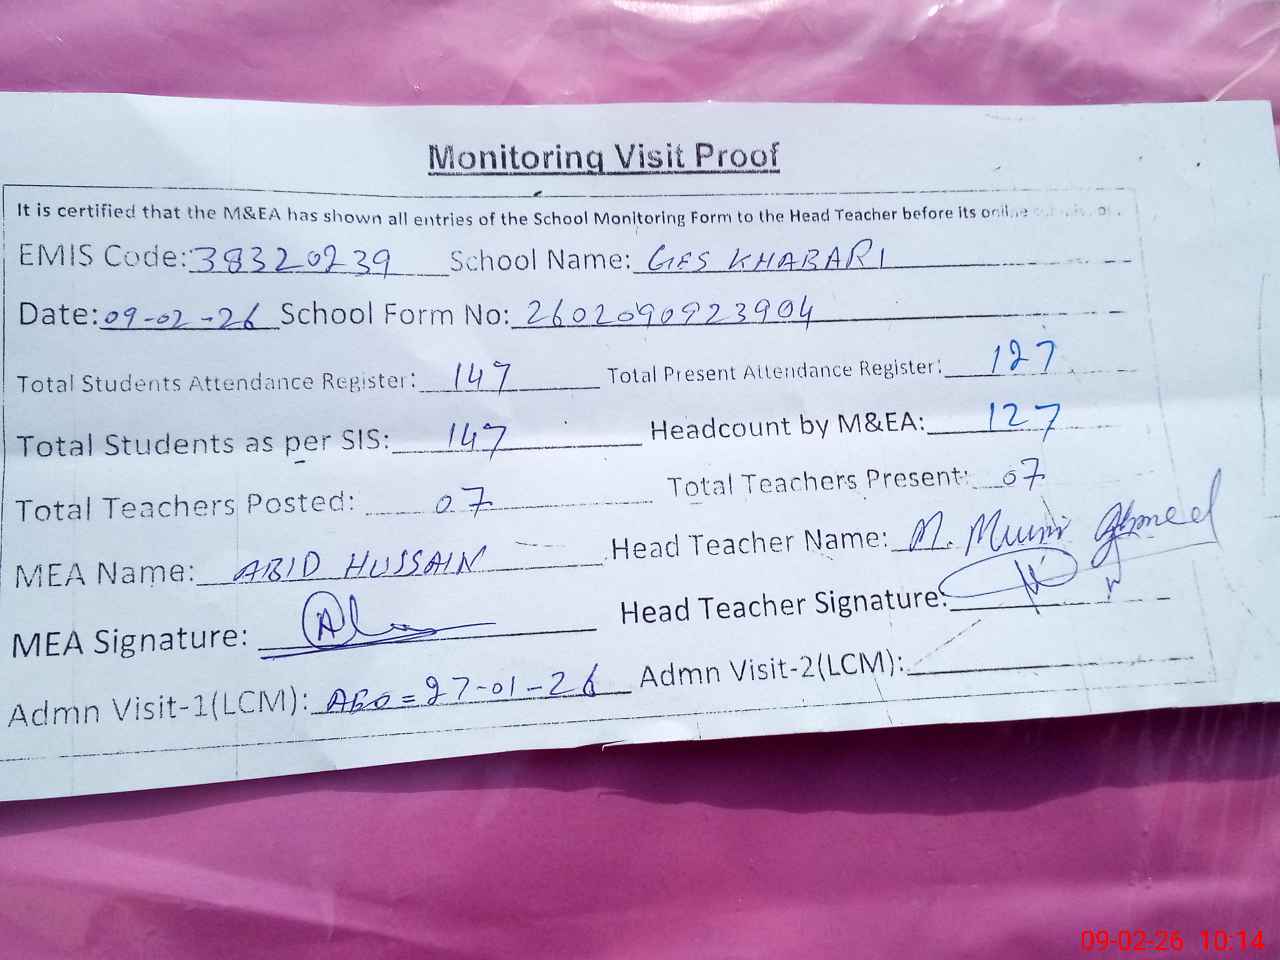 Monitoring Visit Proof
It is certified that the M&EA has shown all entries of the School Monitoring Form to the Head Teacher before its online
EMIS Code: 38320239 School Name: GES KHABARI
Date: 09-02-26 School Form No: 2602090923904
Total Students Attendance Register: 147 Total Present Attendance Register: 127
Total Students as per SIS: 147 Headcount by M&EA: 127
Total Teachers Posted: 07 Total Teachers Present: 07
MEA Name: ABID HUSSAIN Head Teacher Name: M. Ahmed
MEA Signature: Head Teacher Signature:
Admn Visit-1(LCM): AEO = 27-01-26 Admn Visit-2(LCM):
09-02-26 10:14